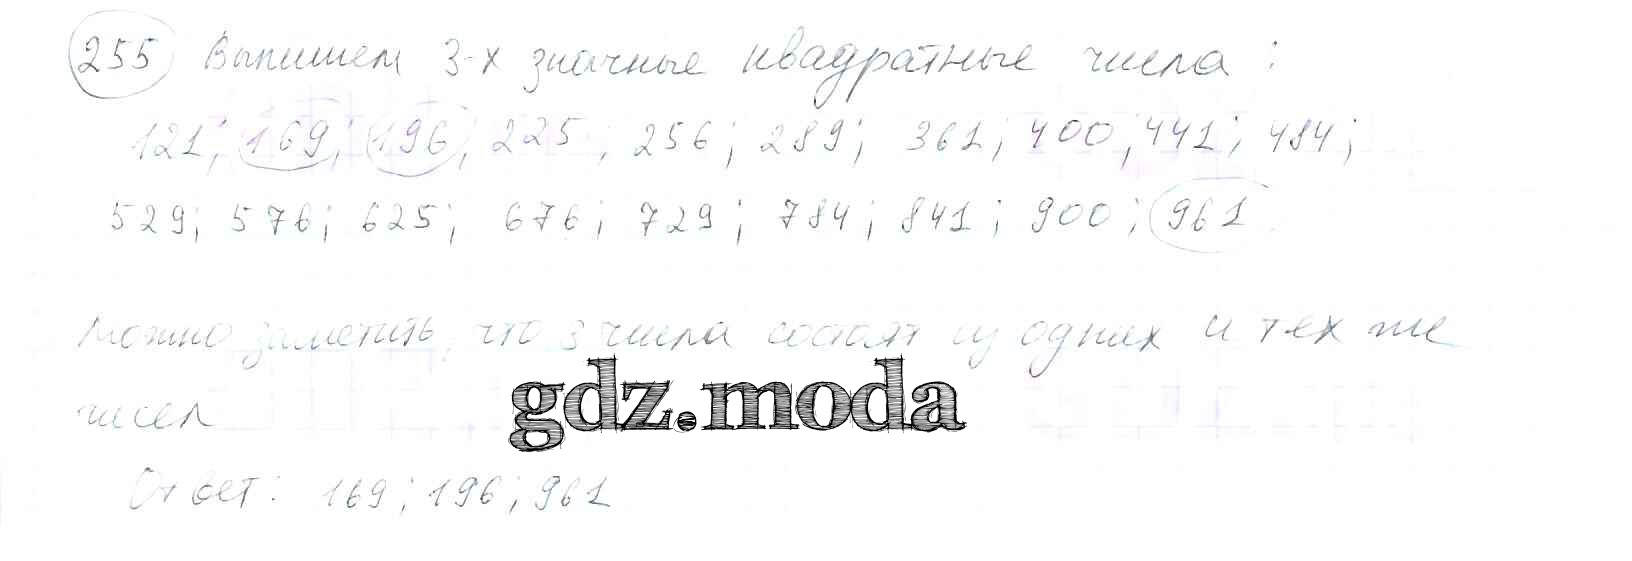 255 Выпишем 3-х значные квадратные числа:
121; 169; 196; 225; 256; 289; 361; 400; 441; 484;
529; 576; 625; 676; 729; 784; 841; 900; 961
Можно заметить, что 3 числа состоят из одних и тех же
чисел
gdz.moda
Ответ: 169; 196; 961